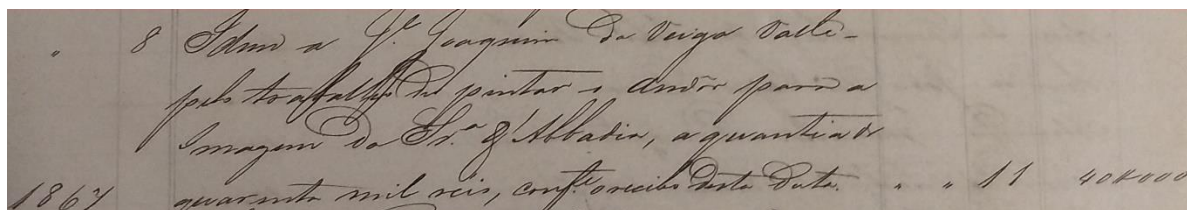 " 8 Idem a Je. Joaquim da Veiga Valle-
pelo trabalho de pintar o andôr para a
Imagem da Sra. d'Abbadia, a quantia de
1867 quarenta mil reis, confe. o recibo desta data. " " 11 40$000